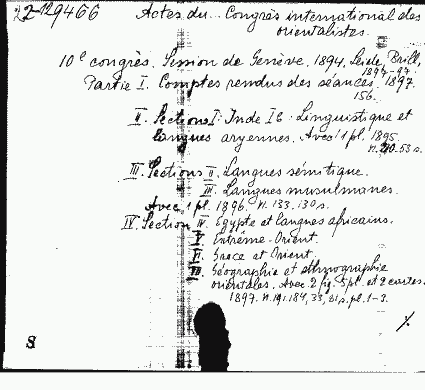 22-129466 Actes du.. Congrès international des
orientalistes.
10e congrès. Session de Genève. 1894. Leide, Brill,
1897-97.
Partie I. Comptes rendus des séances. 1897.
156.
II. Sections I: Inde Ib. Linguistique et
langues aryennes. Avec 1 pl. 1895.
53 s.
III. Sections II. Langues sémitique.
III. Langues musulmanes.
Avec 1 pl. 1896. п. 133. 130 s.
IV. Section IV. Egypte et langues africains.
V. Extrême-Orient.
VI. Grèce et Orient.
VII. Géographie et ethnographie
orientales. Avec 2 fig. 5 pl. et 2 cartes.
1897. п. 191. 184, 33, 81 s. pl. 1-3.
%
S